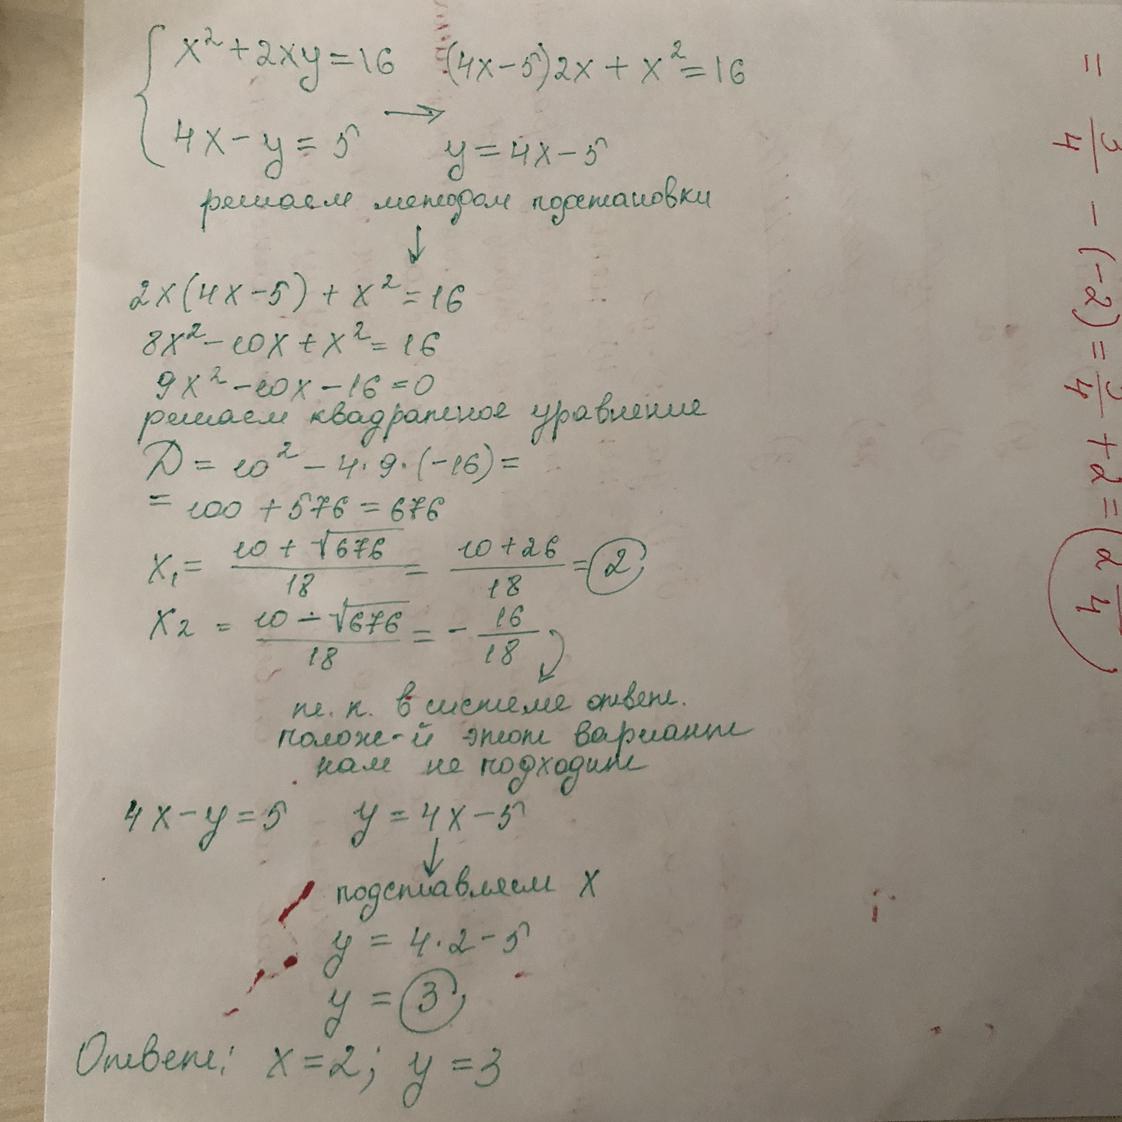 x² + 2xy = 16    (4x − 5)2x + x² = 16
4x − y = 5  →  y = 4x − 5
решаем методом подстановки
↓
2x(4x − 5) + x² = 16
8x² − 10x + x² = 16
9x² − 10x − 16 = 0
решаем квадратное уравнение
D = 10² − 4·9·(−16) =
= 100 + 576 = 676
x₁ = (10 + √676)/18 = (10 + 26)/18 = 2
x₂ = (10 − √676)/18 = −16/18
т. к. в системе ответ.
полож-й этот вариант
нам не подходит
4x − y = 5    y = 4x − 5
↓
подставляем x
y = 4·2 − 5
y = 3
Ответ: x = 2; y = 3
= 3/4 − (−2) = 3/4 + 2 =